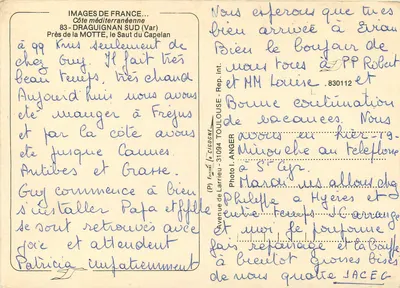 IMAGES DE FRANCE...
Côte méditerranéenne
83 - DRAGUIGNAN SUD (Var)
Près de la MOTTE, le Saut du Capelan
à 99 Kms seulement de
chez Guy. Il fait très
beau temps, très chaud
Aujourd'hui nous avons
été manger à Fréjus
et par la côte avons
été jusque Cannes
Antibes et Grasse.
Guy commence à bien
s'installer Papa et
se sont retrouvés avec
joie et attendent
Patricia impatiemment
830112
Avenue de Larrieu - 31094 TOULOUSE - Rep. Int.
Photo L. ANGER
Nous espérons que tu es
bien arrivée à Evian
Bien le bonjour de
nous tous à PP Robert
et MM Louise.
Bonne continuation
de vacances. Nous
avons eu hier
Minouche au téléphone
à St Cyr.
Mardi ns allons chez
Philippe à Hyères et
entre temps JC arrange
et moi, je pouponne
fais repassage et la bouffe
à bientôt grosses bises
de nous quatre JACEG